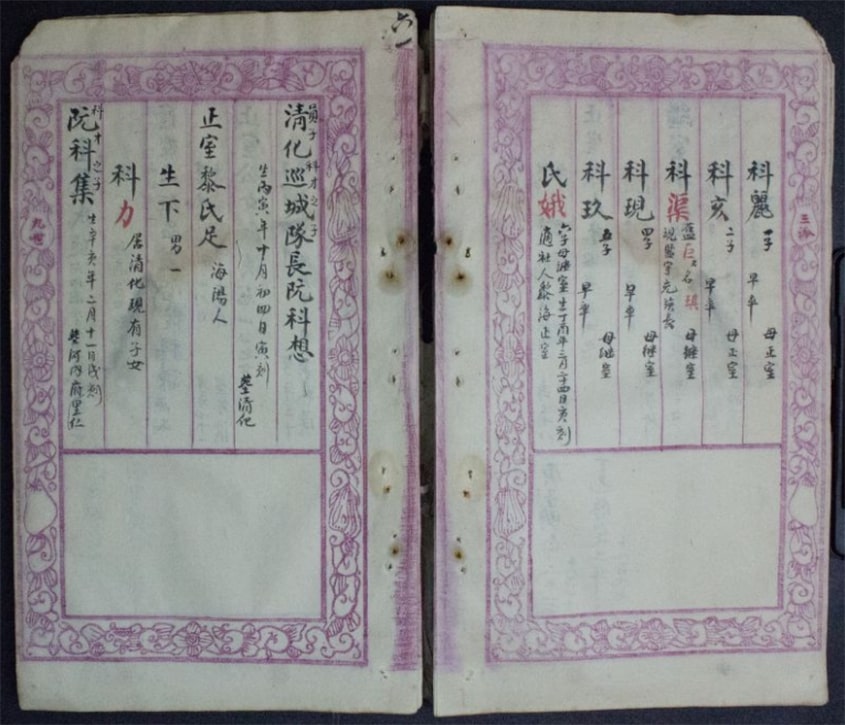 三派
科麗 一子 早卒 母正室
科亥 二子 早卒 母正室
科渠 三子 名琪 母継室
科現 四子 早卒 母継室
科玖 五子 早卒 母継室
氏娥 六子母継室生丁酉年三月十四日寅刻
適社人黎海正室
六一
員子科才之子
清化巡城隊長阮科想
生丙寅年十月初四日寅刻 塟清化
正室黎氏足 海陽人
生下 男一
科力 居清化現有子女
科才之子
阮科集 生辛亥年二月十一日戌刻 塟河内府里仁
九世